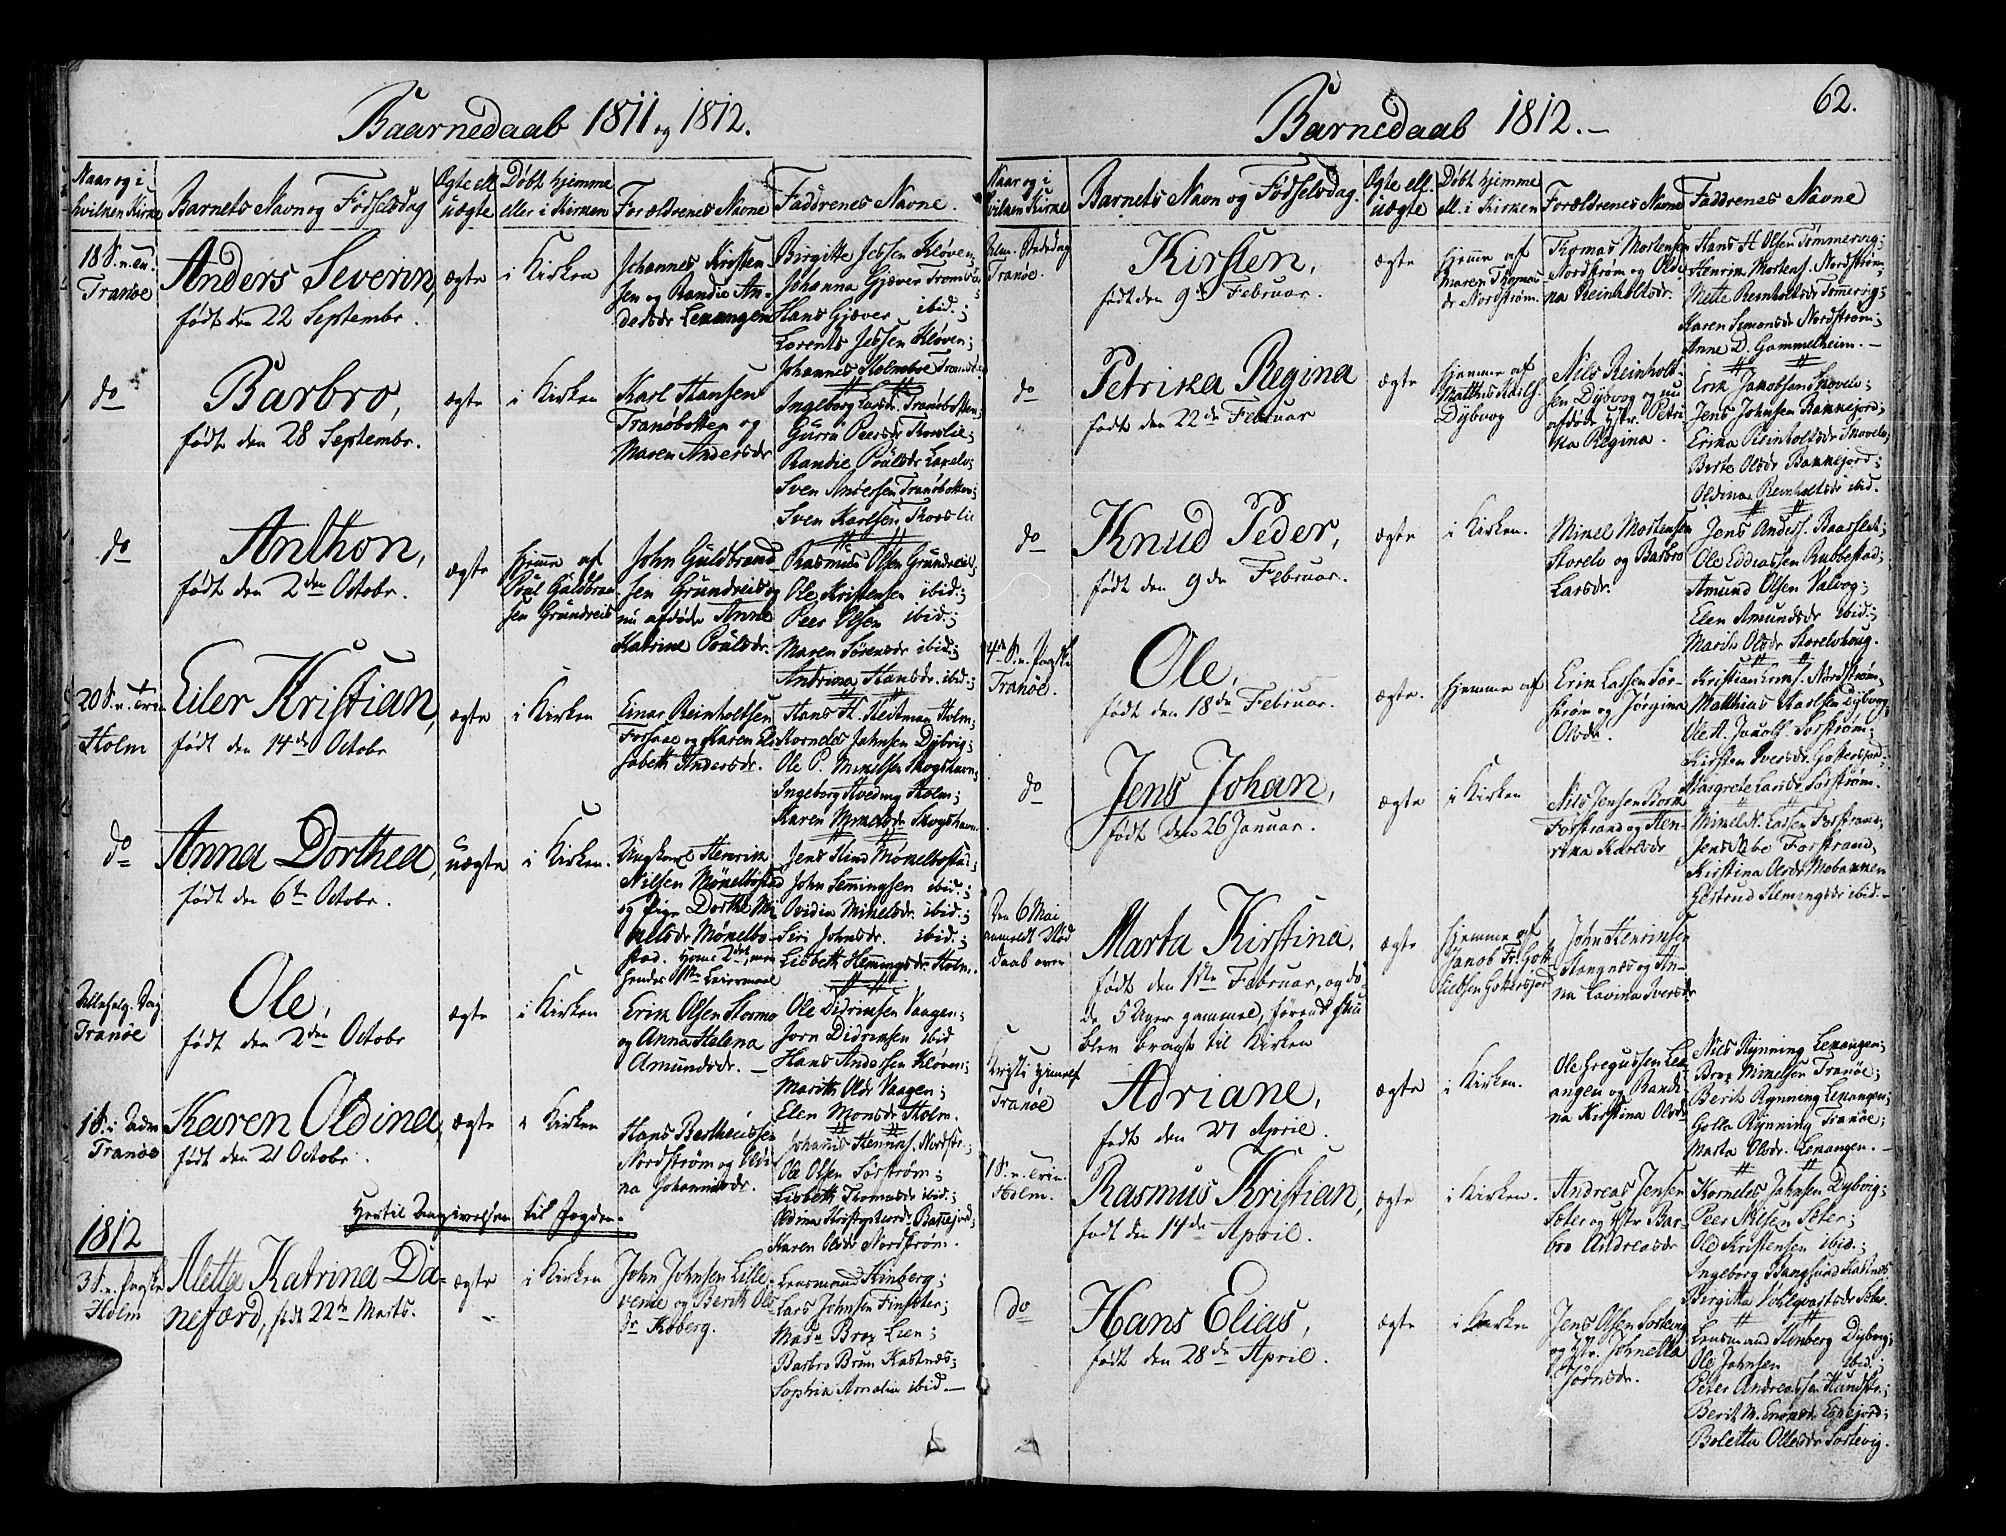 Baarnedaab 1811 og 1812.
Naar og i hvilken Kirke
Barnets Navn og Fødselsdag
Ægte ell. uægte
Døbt hjemme eller i Kirken
Forældrenes Navne
Faddrenes Navne.
18 S. n.
Tranøe
Anders Severin,
født den 22 Septembr.
ægte
i Kirken
Johannes Kristen-
sen og Randie An-
dersdr Lexangen
Birgitte Jebsen Kløven;
Johanna Gjæver Tromsøe;
Hans Gjæver ibid.;
Lorents Jebsen Kløven;
Johannes Holmboe Tromsøe
do
Barbro,
født den 28 Septembr.
ægte
i Kirken
Karl Hansen
Tranøbotten og
Maren Andersdr
Ingeborg Larsdr. Tranøbotten;
Gurra Peersdr
Randie Poulsdr Laxelv;
Sven Andersen Tranøbotten;
Sven Karlsen
do
Anthon,
født den 2den Octobr.
ægte
hjemme af
Poul Guldbran-
sen Grundreis
John Guldbrand-
sen Grundreis og
nu afdøde Anne
Katrine Poulsdr.
Rasmus Olsen Grundreis;
Ole Kristensen ibid.;
Peer Olsen ibid.;
Maren Sørensdr ibid.;
Andrina Hansdr. ibid.;
20 S. n. Trin
Holm
Eiler Kristian,
født den 14de Octobr
ægte
i Kirken
Einar Reinholtsen
Forsaae og Karen Eli-
sabeth Andersdr.
Hans H. Heitman Holm;
Kornelés Johnsen Dybvig;
Ole P. Mikelsen Skogshavn;
Ingeborg Hveding Holm;
Karen Mikelsdr Skogshavn
do
Anna Dorthea,
født den 6te Octobr.
uægte
i Kirken.
Ungkarl Henrik
Nilsen Mökelbostad
og Pige Dorthe Mi-
kelsdr Mökelbo-
stad. hans 2det, men
hendes 1ste Leiermaal
Jens Hind Mökelbostad;
John Hemingsen ibid.;
Ovidia Mikelsdr. ibid.;
Siri Johnsdr. ibid.;
Lisbeth Hemmingsdr. Holm.
Allehelg. Dag
Tranøe
Ole,
født den 2den Octobr
ægte
i Kirken
Erik Olsen Stormo
og Anna Helena
Amundsdr.
Ole Didriksen Vaagen;
Jorn Didriksen ibid
Hans Andersen Kløven;
Marith Olsdr Vaagen;
Elen Monsdr Holm.
1 S. i Adv
Tranøe
Karen Oldina,
født den 21 Octobr.
ægte
i Kirken
Hans Bertheussen
Nordstrøm og Oldi-
na Johannisdr.
Johannis Henriks. Nordstr.;
Ole Olsen Sørstrøm;
Lisbeth Thomasdr ibid.;
Karen Olsdr Nordstrøm.
Hertil Angivelsen til Fogden.
1812
3 S. n. Paaske
Holm
Aletta Katrina Da-
neføerd, født 22de Marts.
ægte
i Kirken
John Johnsen Lille-
vene og Berith Ols-
dr Koberg.
Lensmand Kinberg;
Lars Johnsen Finsæter;
Mada Brox Lien;
Barbro Brun Kastnæs;
Sophia Amalia ibid.
Barnedaab 1812.
62.
Naar og i hvilken Kirke
Barnets Navn og Fødselsdag.
Ægte ell. uægte
Døbt hjemme ell. i Kirken
Forældrenes Navne
Faddrenes Navne
Tranøe.
Kirsten,
født den 9de Februar.
ægte
hjemme af
Maren Thomas-
dr Nordstrøm.
Thomas Mortensen
Nordstrøm og Oldi-
na Reinholtsdr.
Hans H Olsen Tommervig;
Henrik Mortens. Nordstrøm;
Mette Reinholtsdr Tommervig;
Karen Simonsdr Nordstrøm;
Anne D. Gammelheim.
do
Petrika Regina
født den 22de Februar
ægte
hjemme af
Matthis Karls.
Dybvog
Nils Reinholt-
sen Dybvog og nu
afdøde Hstr. Petri-
ka Regina.
Erik Jakobsen Skovelv;
Jens Johnsen Bakkejord;
Erika Reinholtsdr Skovelv;
Berte Olsdr Bakkejord;
Oldina Reinholtsdr ibid.
do
Knud Peder,
født den 9de Februar.
ægte
i Kirken.
Mikel Mortensen
Storelv og Barbro
Larsdr.
Jens Anders. Baarslet;
Ole Eddiassen Rubbestad;
Amund Olsen Valvog;
Elen Amundsdr ibid.;
Marith Olsdr Storelvhoug.
4de S. n. Paaske
Tranøe.
Ole,
født den 18de Februar.
ægte.
hjemme af
Erik Lassen Sør-
strøm og Jørgina
Olsdr.
Kristian Eriks. Nordstrøm;
Matthias Karlsen Dybvog;
Ole A. Sørstrøm;
Kirsten Iversdr. Gottesjord;
Margrete Larsdr Sørstrøm.
do
Jens Johan,
født den 26 Januar.
ægte
i Kirken
Nils Jensen Bork
Forstrand og Hen-
rika Karlsdr
Mikel K. Lassen Forstrand;
Jens Ibe Forstrand;
Kristina Olsdr Mobakken
Gjertrud Hemingsdr ibid.
Den 6 Mai
anmeldt Nød
daab over
Marta Kirstina,
født den 1ste Februar, og dö-
de 5 Uger gammel, førend hun
blev bragt til Kirken
ægte
hjemme af
Jakob Fr. Gott-
lielsen Gottesjord
John Henriksen
Stangnæs og An-
na Lavina Iversdr
Kristi Himmelf
Tranøe
Adriane,
født den 21 April.
ægte
i Kirken.
Ole Gregussen Lex-
angen og Randi-
na Kirstina Olsdr
Nils Rynning Lexangen;
Brox Mikelsen Tranøe;
Berit Rynning Lexangen;
Golla Rynning Tranøe;
Marta Olsdr. Lexangen.
1 S. n. Trin.
Holm.
Rasmus Kristian,
født den 14de April.
ægte
i Kirken.
Andreas Jensen
Sæter og Hstr Bar-
bro Andreasdr
Kornelés Johnsen Dybvig;
Peer Nilsen Sæter;
Ole Kristensen ibid.;
Ingeborg Bangsund Kastnæs
Birgitta Sæter.
do
Hans Elias,
født den 28de April.
ægte
i Kirken
Jens Olsen Sørvig
og Hstr. Johnetta
Jørnsdr.
Lensmand Kinberg Dybvog;
Ole Johnsen ibid.;
Peter Andreassen Hundstr.;
Berit M. Enoksdr Espejord;
Boletta Ollesdr Sørvig.